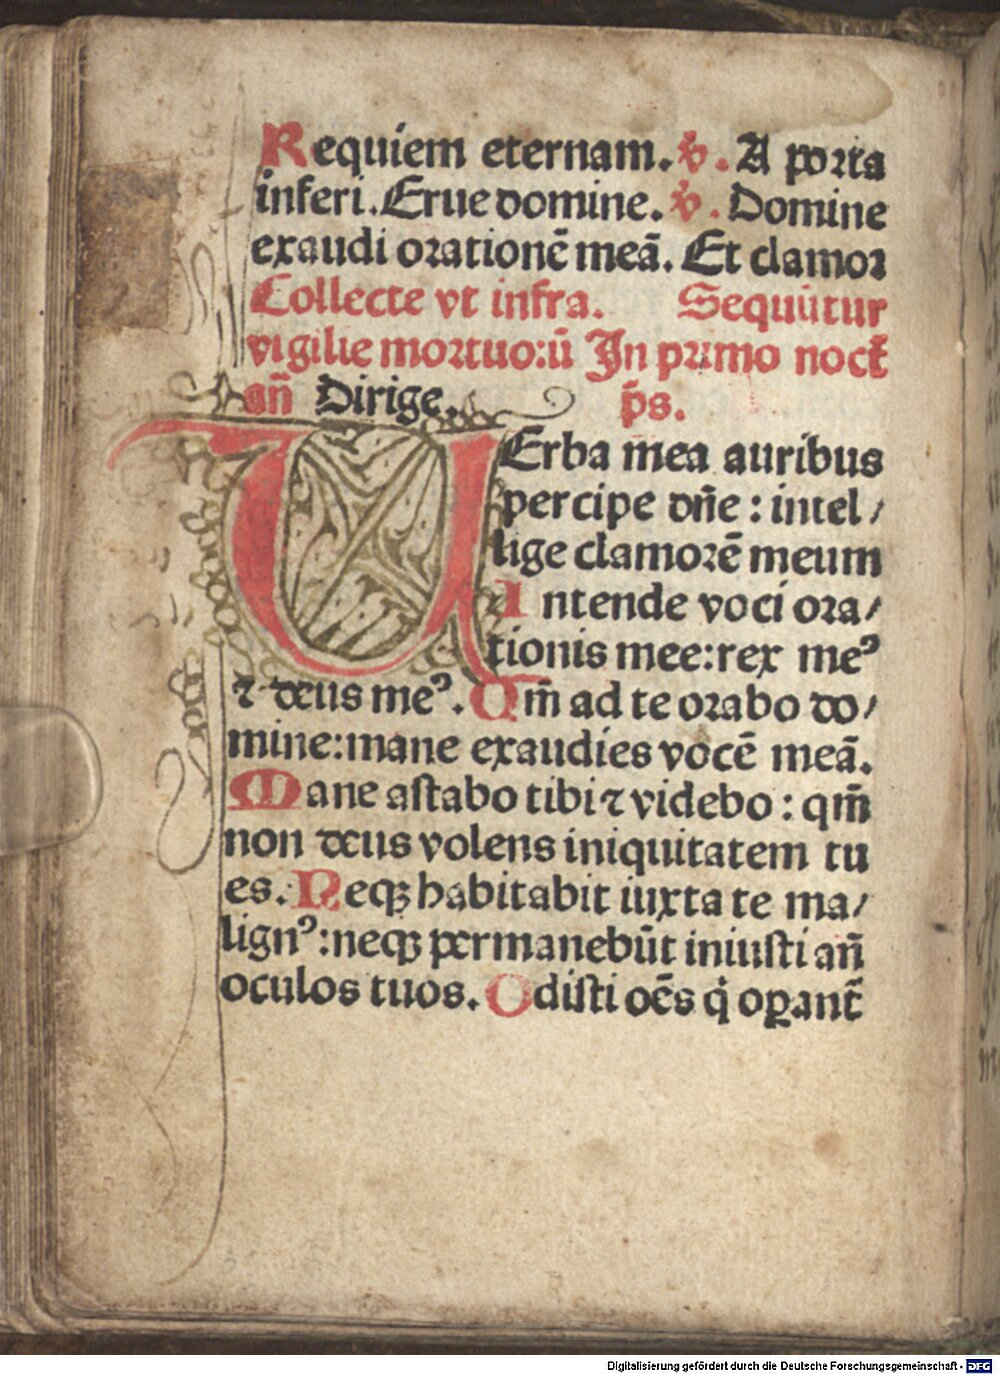 Requiem eternam. ℣. A porta
inferi. Erue domine. ℣. Domine
exaudi orationē meā. Et clamor
Collecte vt infra. Sequūtur
vigilie mortuoꝝ̄ In primo noct̄
an̄ Dirige. p̄s.
VErba mea auribus
percipe dn̄e : intel /
lige clamorē meum
Intende voci ora/
tionis mee: rex meꝰ
⁊ deus meꝰ. Qm̄ ad te orabo do/
mine: mane exaudies vocē meā.
Mane astabo tibi ⁊ videbo : qm̄
non deus volens iniquitatem tu
es. Neqꝫ habitabit iuxta te ma/
lignꝰ: neqꝫ permanebūt iniusti an̄
oculos tuos. Odisti oēs q̇ oꝑant̄
Digitalisierung gefördert durch die Deutsche Forschungsgemeinschaft - DFG